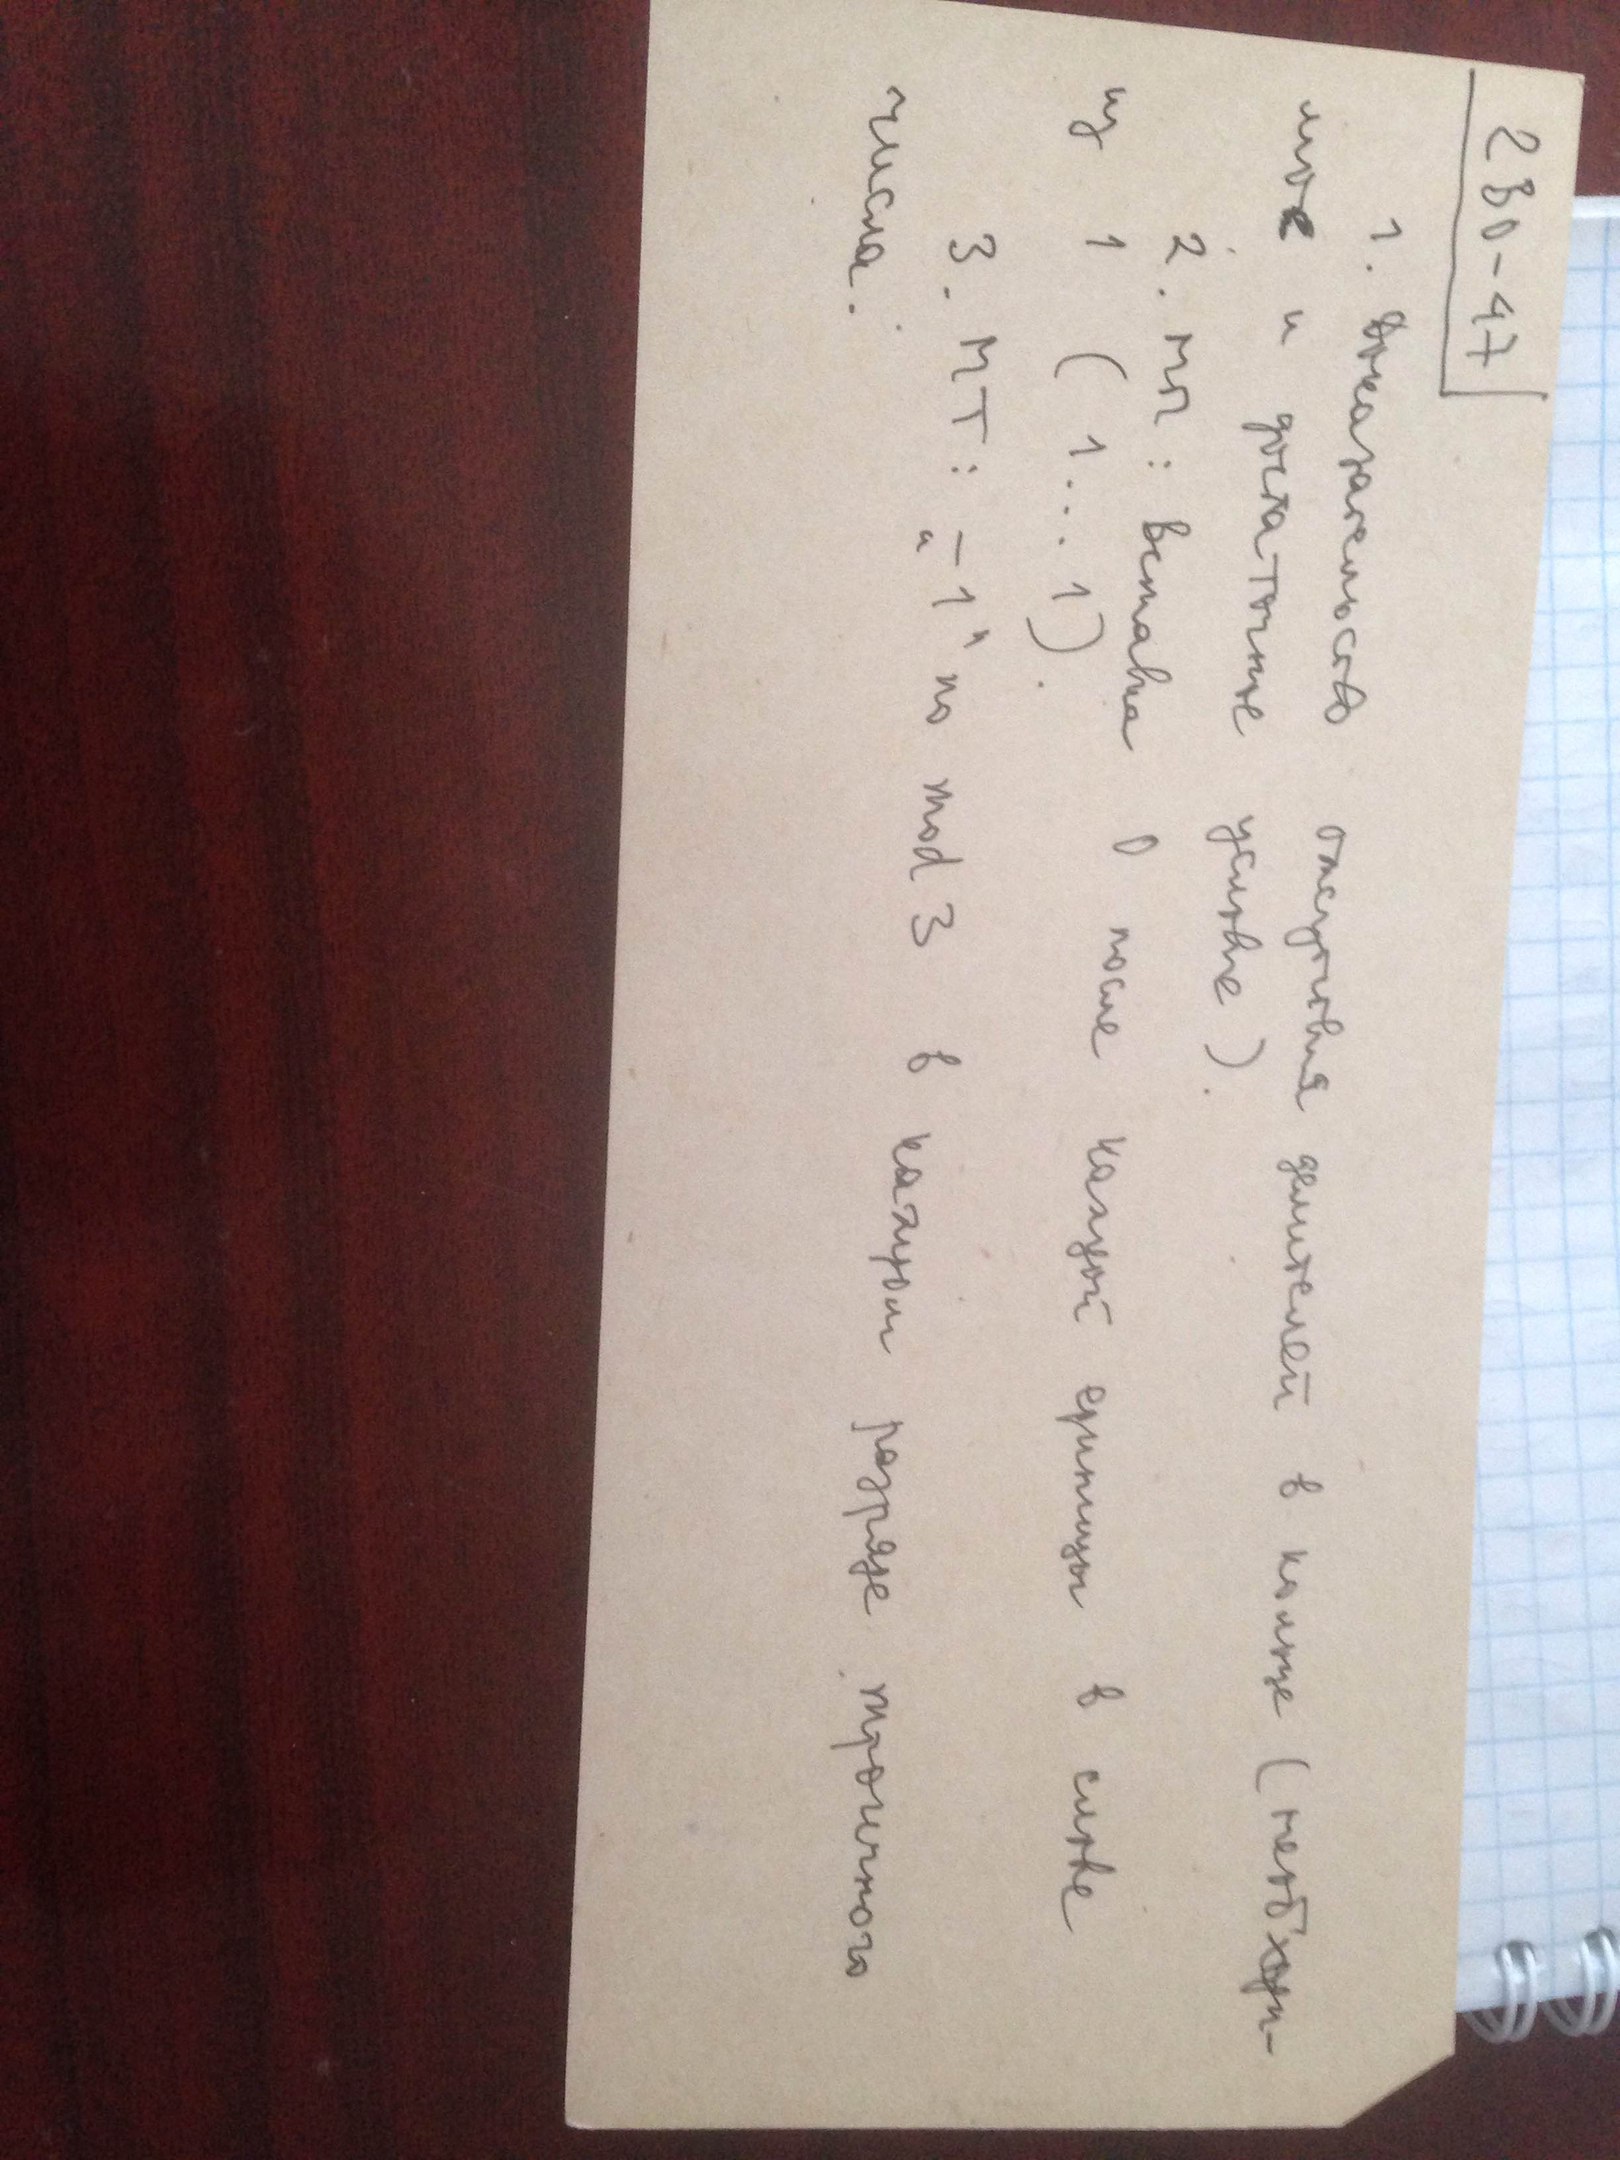 2В0-47
1. Доказательство отсутствия делителей в кольце (необходи-
мое и достаточное условие).
2. МП: Вставка 0 после каждой единицы в слове
из 1 (1...1).
3. МТ: "-1" по mod 3 в каждом разряде троичного
числа.